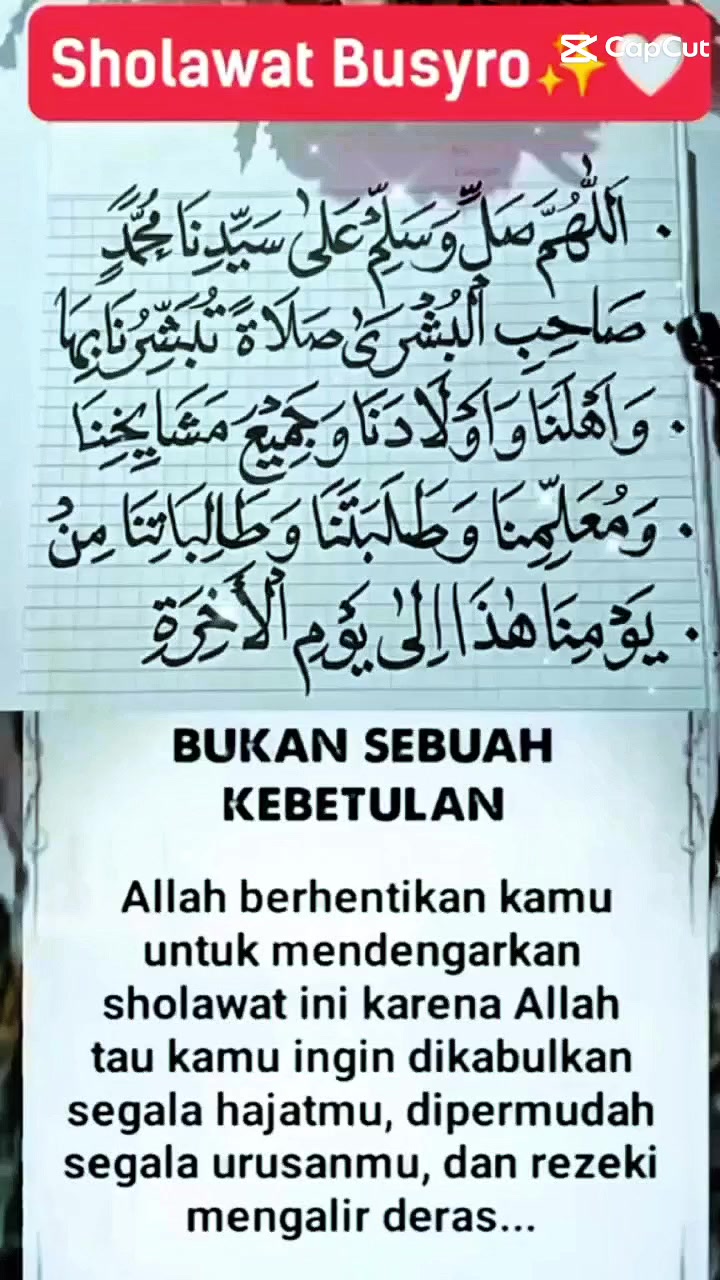 Sholawat Busyro✨🤍
CapCut
. اَللّٰهُمَّ صَلِّ وَسَلِّمْ عَلٰى سَيِّدِنَا مُحَمَّدٍ
. صَاحِبِ الْبُشْرَىٰ صَلَاةً تُبَشِّرُنَا بِهَا
. وَاَهْلَنَا وَاَوْلَادَنَا وَجَمِيْعَ مَشَايِخِنَا
. وَمُعَلِّمِنَا وَطَلَبَتَنَا وَطَالِبَاتِنَا مِنْ
. يَوْمِنَا هٰذَا اِلٰى يَوْمِ الْأٰخِرَةِ
BUKAN SEBUAH
KEBETULAN
Allah berhentikan kamu
untuk mendengarkan
sholawat ini karena Allah
tau kamu ingin dikabulkan
segala hajatmu, dipermudah
segala urusanmu, dan rezeki
mengalir deras...